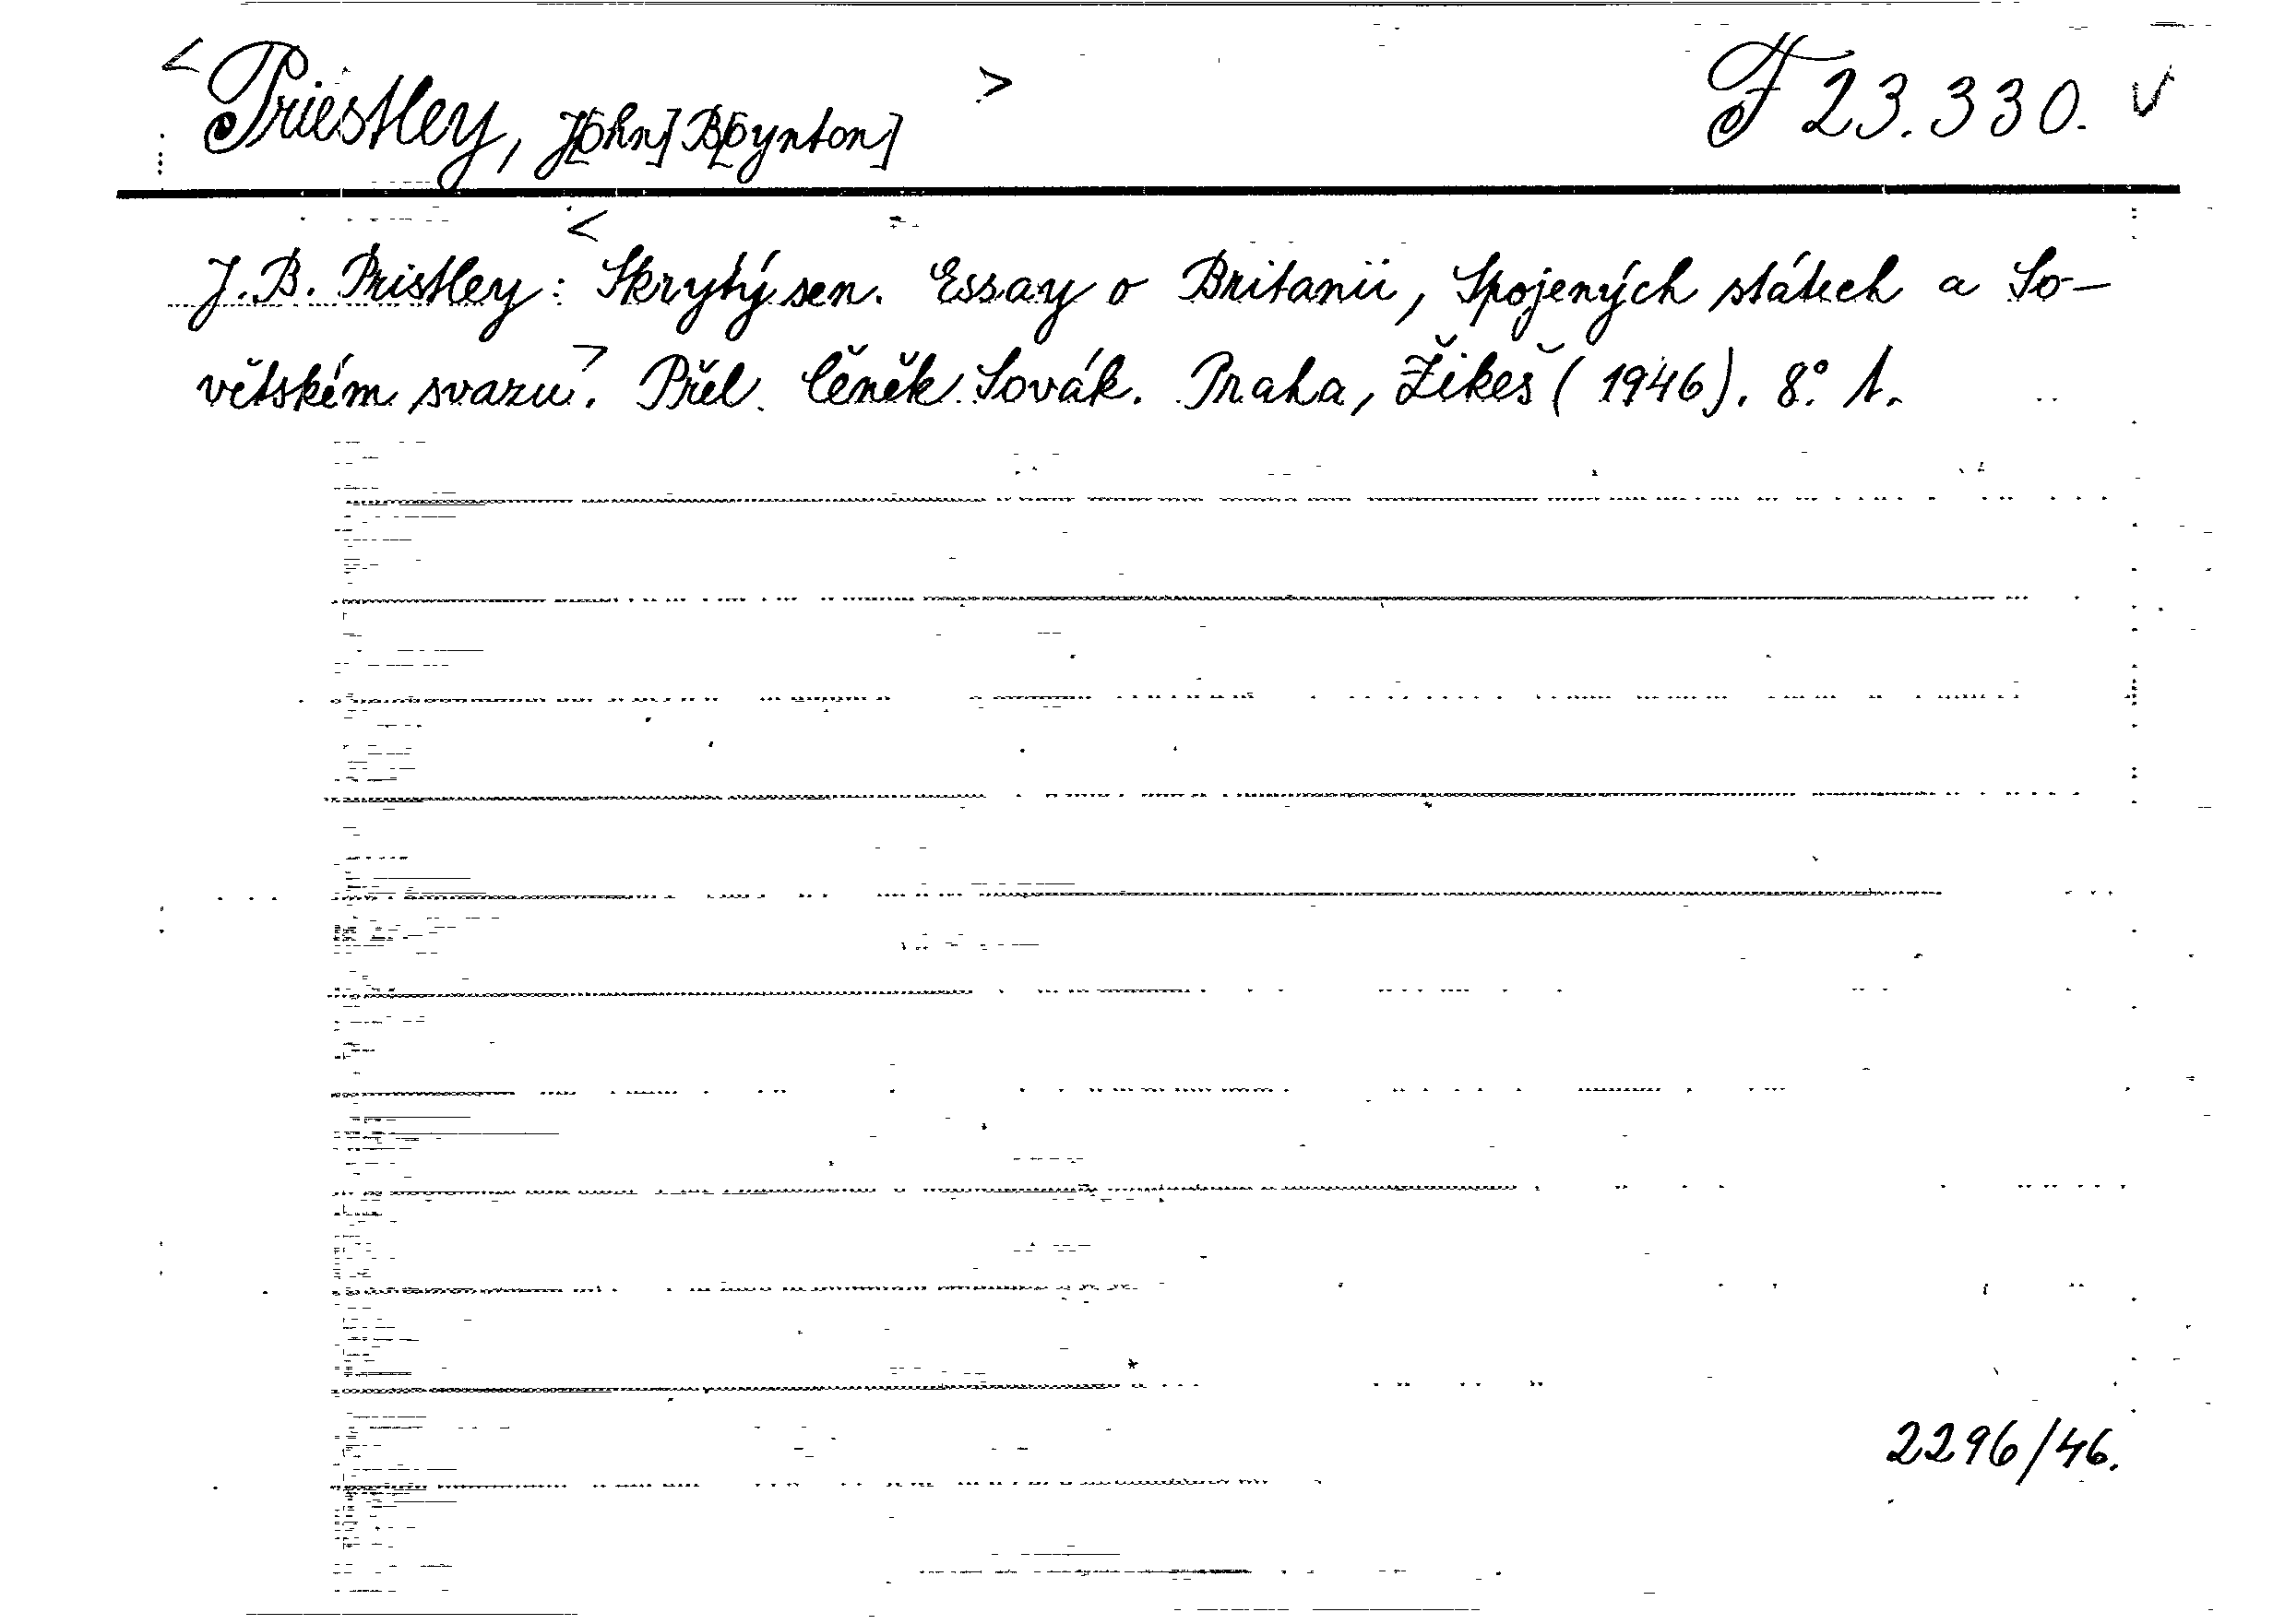 < Priestley, J[ohn] B[oynton] > F 23.330. √
J. B. Pristley: < Skrytý sen. Essay o Britanii, Spojených státech a So-
větském svazu >. Přel. Čeněk Sovák. Praha, Žikeš (1946). 8° 1.
2296/46.